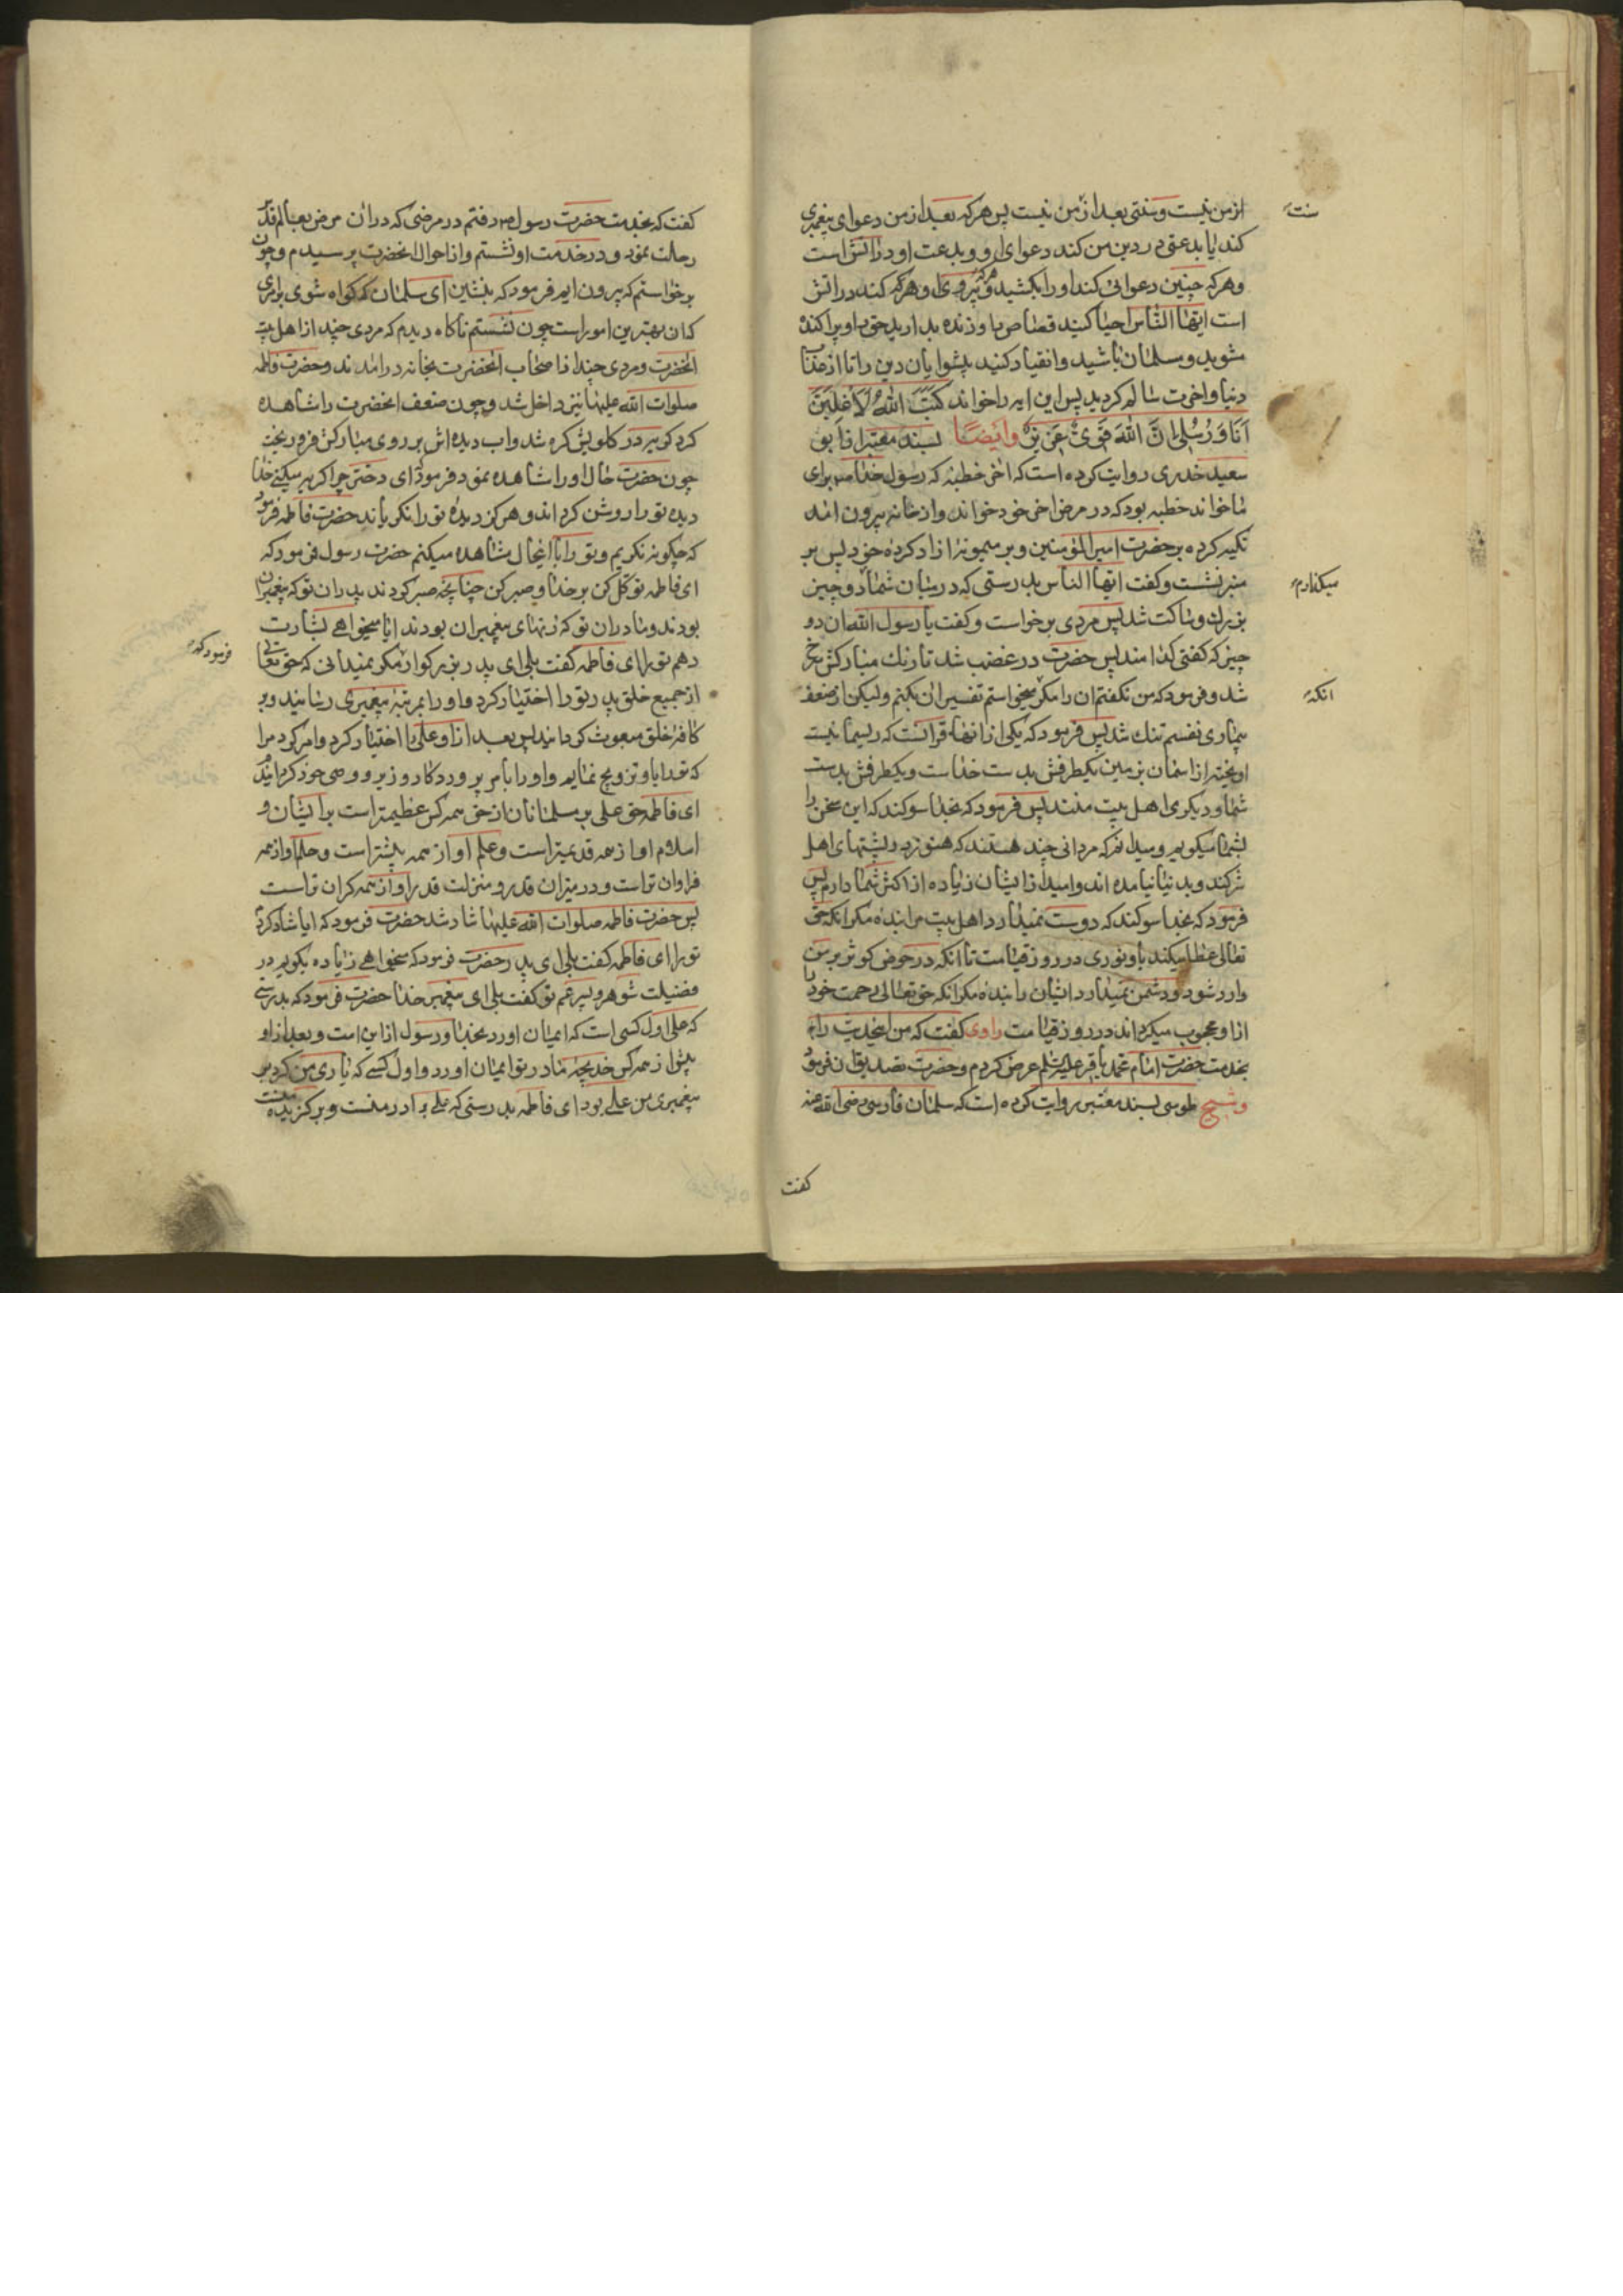 ازمن نیست وسنتی بعد ازمن نیست پس هرکه بعد ازمن دعوای پیغمبری
سنت
کند یا بدعتی در دین من کند دعوای او و بدعت او در اتش است
وهرکه چنین دعوائی کند او را بکشید و هرکه پیروی او کند در اتش
است ایها الناس احیا کنید قصاص را و زنده بدارید حق را و پراکنده
مشوید و مسلمان باشید و انقیاد کنید پیشوایان دین را تا از
دنیا و اخرت سالم کردید پس این ایه را خواند کَتَبَ اللهُ لَاَغْلِبَنَّ
اَنَا وَرُسُلِی اِنَّ اللهَ قَوِیٌّ عَزِیزٌ وایضًا بسند معتبر از ابو
سعید خدری روایت کرده است که اخر خطبه که رسول خدا ص برای
ما خواند خطبه بود که در مرض اخر خود خواند و از خانه بیرون امد
تکیه کرده بر حضرت امیر المؤمنین و بر میمونه ازاد کرده خود پس بر
منبر نشست و کفت ایها الناس بدرستی که در میان شما دو چیز
میکذارم
بزرك و ساکت شد پس مردی برخواست و کفت یا رسول الله ان دو
چیز که کفتی کدامند پس حضرت در غضب شد تا رنك مبارکش سرخ
شد و فرمود که من نکفتم ان را مکر میخواستم تفسیر ان بکنم ولیکن از ضعف
انکه
بیماری نفسم تنك شد پس فرمود که یکی از انها قرانست که ریسمانیست
اویخته از اسمان بزمین یکطرفش بدست خداست و یکطرفش بدست
شما و دیکری اهل بیت منند پس فرمود که بخدا سوکند که این سخن را
بشما میکویم و میدانم که مردانی چند هستند که هنوز در پشتهای اهل
شرکند و بدنیا نیامده اند و امید از ایشان زیاده از اکثر شما دارم پس
فرمود که بخدا سوکند که دوست نمیدارد اهل بیت مرا بنده مکر انکه حق
تعالی عطا میکند باو نوری در روز قیامت تا انکه در حوض کوثر بر من
وارد شود و دشمن نمیدارد ایشان را بنده مکر انکه حق تعالی رحمت خود را
از او محجوب میکرداند در روز قیامت راوی کفت که من اینحدیث را
بخدمت حضرت امام محمد باقر علیه السلام عرض کردم و حضرت تصدیق ان فرمود
و شیخ طوسی بسند معتبر روایت کرده است که سلمان فارسی رضی الله عنه
کفت
کفت که بخدمت حضرت رسول ص رفتم در مرضی که در ان مرض بعالم قدس
رحلت نمود و در خدمت او نشستم و از احوال انحضرت پرسیدم و چون
برخواستم که بیرون ایم فرمود که بنشین ای سلمان که کواه شوی بر امری
که ان بهترین امور است چون نشستم ناکاه دیدم که مردی چند از اهل بیت
انحضرت و مردی چند از اصحاب انحضرت بخانه در امدند و حضرت فاطمه
صلوات الله علیها نیز داخل شد و چون ضعف انحضرت را مشاهده
کرد کریه در کلویش کره شد و اب دیده اش بر روی مبارکش فرو ریخت
چون حضرت حال او را مشاهده نمود فرمود ای دختر چرا کریه میکنی خدا
دیده تو را روشن کرداند و هرکز دیده تو را نکریاند حضرت فاطمه فرمود
که چکونه نکریم و تو را باینحال مشاهده میکنم حضرت رسول فرمود که
ای فاطمه توکل کن بر خدا و صبر کن چنانچه صبر کردند پدران تو که پیغمبران
بودند و مادران تو که زنهای پیغمبران بودند ایا میخواهی بشارت
دهم تو را ای فاطمه کفت بلی ای پدر بزرکوار مکر نمیدانی که حق تعالی
فرمود که
از جمیع خلق پدر تو را اختیار کرد و او را بمرتبه پیغمبری رسانید و بر
کافه خلق مبعوث کردانید پس بعد از او علی را اختیار کرد و امر کرد مرا
که تو را باو تزویج نمایم و او را بامر پروردکار وزیر و وصی خود کردانیدم
ای فاطمه حق علی بر مسلمانان از حق همه کس عظیمتر است بر ایشان و
اسلام او از همه قدیمتر است و علم او از همه بیشتر است و حلم او از همه
فراوان تر است و در میزان قدر و منزلت قدر او از همه کران تر است
پس حضرت فاطمه صلوات الله علیها شاد شد حضرت فرمود که ایا شاد کردم
تو را ای فاطمه کفت بلی ای پدر حضرت فرمود که میخواهی زیاده بکویم در
فضیلت شوهر و پسر عم تو کفت بلی ای پیغمبر خدا حضرت فرمود که بدرستی
که علی اول کسی است که ایمان اورد بخدا و رسول از این امت و بعد از او
پیشتر از همه کس خدیجه مادر تو ایمان اورد و اول کسی که یاری من کرد بر
پیغمبری من علی بود ای فاطمه بدرستی که علی برادر منست و برکزیده منست